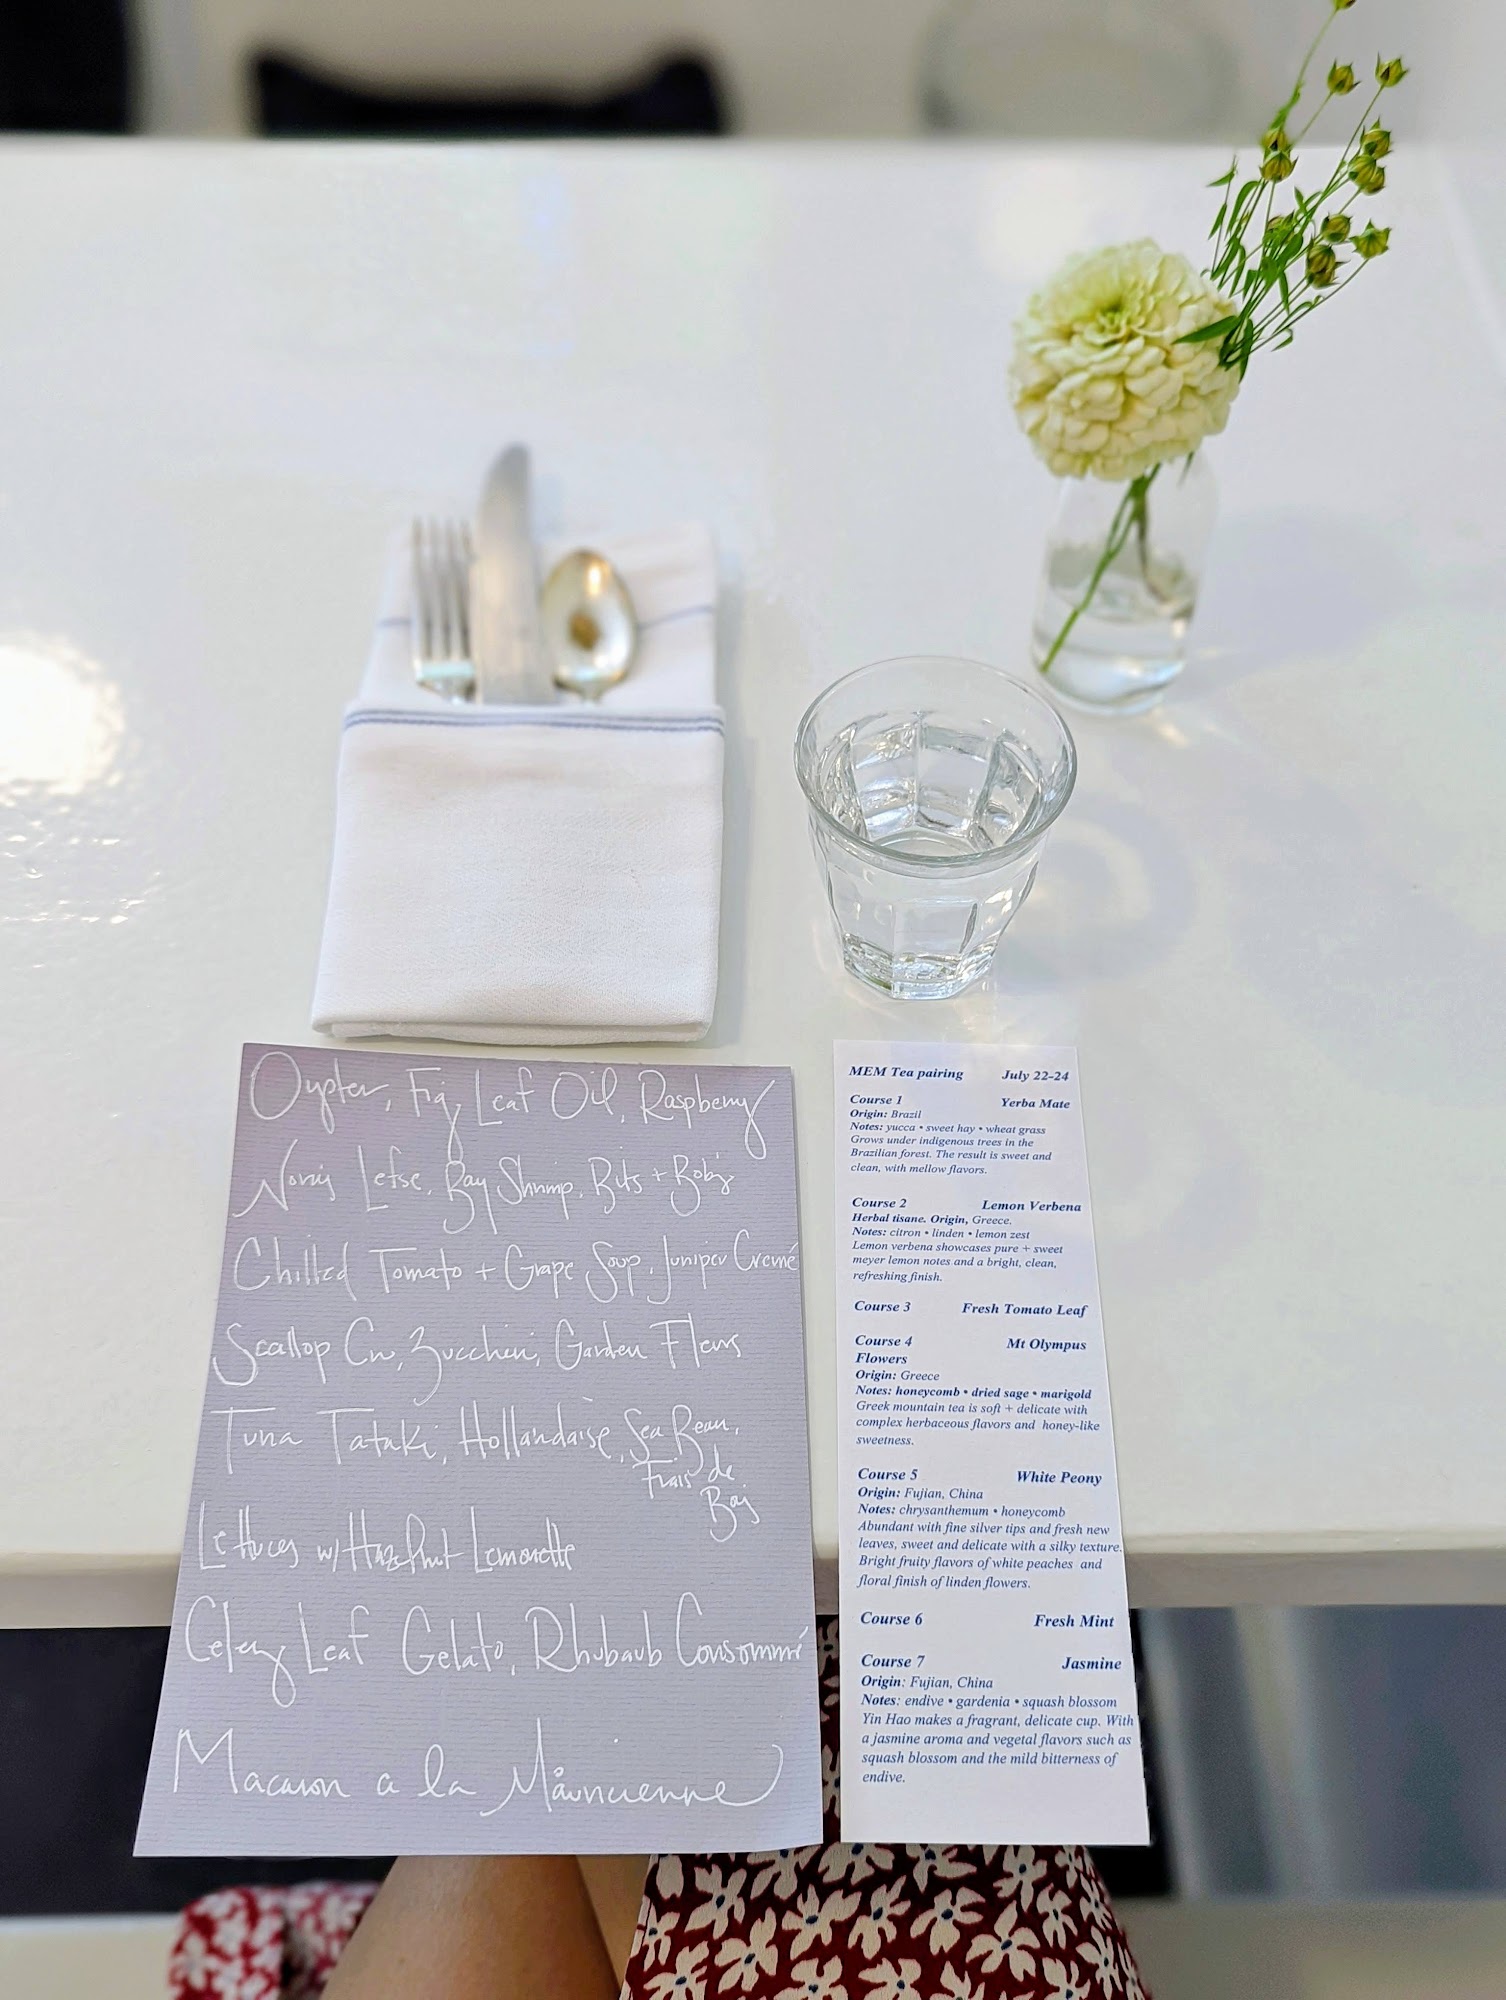 Oyster, Fig Leaf Oil, Raspberry
Lefse, Bay Shrimp, Bits + Bobs
Chilled Tomato + Grape Soup, Juniper Cremé
Scallop Cru, Zucchini, Garden Fleurs
Tuna Tataki, Hollandaise, Sea Bean,
Frais de
Bois
Lettuces w/ Hazelnut Lemonette
Celery Leaf Gelato, Rhubarb Consommé
Macaron a la
MEM Tea pairing July 22-24
Course 1 Yerba Mate
Origin: Brazil
Notes: yucca • sweet hay • wheat grass
Grows under indigenous trees in the
Brazilian forest. The result is sweet and
clean, with mellow flavors.
Course 2 Lemon Verbena
Herbal tisane. Origin, Greece.
Notes: citron • linden • lemon zest
Lemon verbena showcases pure + sweet
meyer lemon notes and a bright, clean,
refreshing finish.
Course 3 Fresh Tomato Leaf
Course 4 Mt Olympus
Flowers
Origin: Greece
Notes: honeycomb • dried sage • marigold
Greek mountain tea is soft + delicate with
complex herbaceous flavors and honey-like
sweetness.
Course 5 White Peony
Origin: Fujian, China
Notes: chrysanthemum • honeycomb
Abundant with fine silver tips and fresh new
leaves, sweet and delicate with a silky texture.
Bright fruity flavors of white peaches and
floral finish of linden flowers.
Course 6 Fresh Mint
Course 7 Jasmine
Origin: Fujian, China
Notes: endive • gardenia • squash blossom
Yin Hao makes a fragrant, delicate cup. With
a jasmine aroma and vegetal flavors such as
squash blossom and the mild bitterness of
endive.